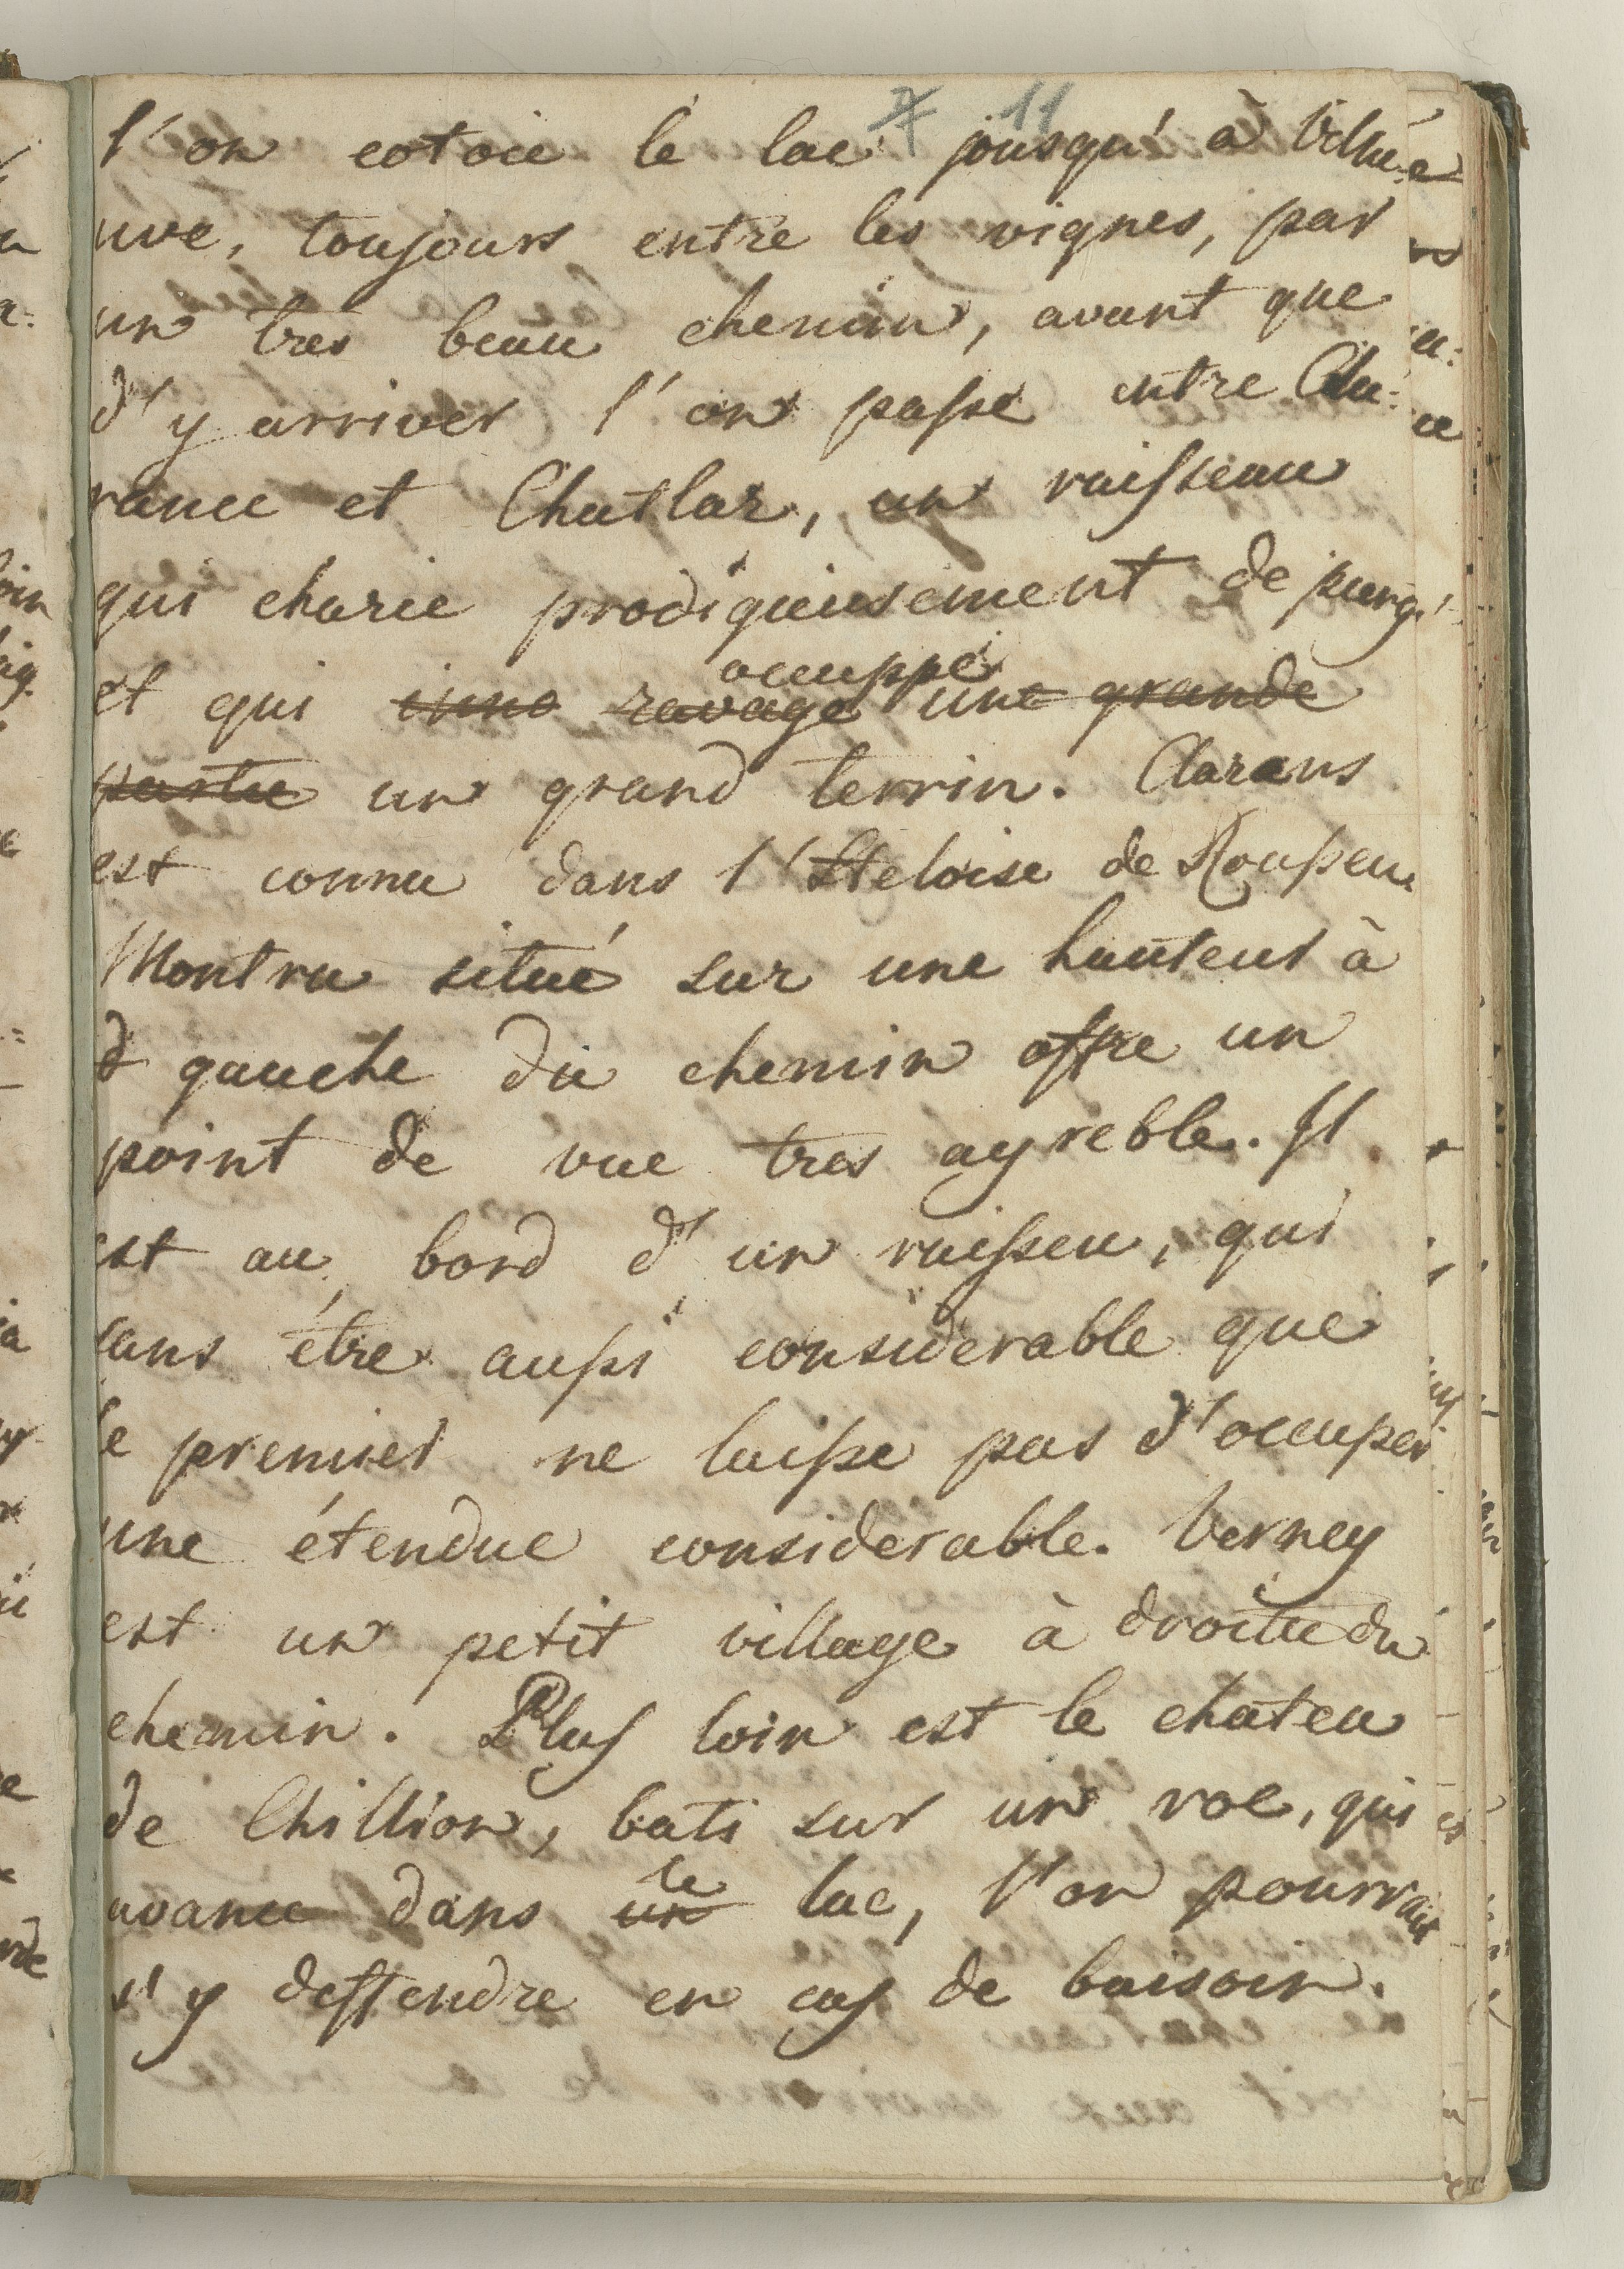 7 11
l'on cotoie le lac jousqu'à Villne
uve, toujours entre les vignes, par
un tres beau chemin, avant que
d'y arriver l'on passe entre Cla-
rance et Chatlar, un ruisseau
qui charie prodigieusement de
occuppe
et qui inno ravage une grande
partie un grand terrin. Clarans
est connu dans l'Heloise de Rousseau
Montru situé sur une hauteur à
d gauche du chemin offre un
point de vue tres agreble. Il
est au bord d'un ruisseu, qui
sans être aussi considerable que
le premier ne laisse pas d'occuper
une étendue considerable. Verney
est un petit village à droite du
chemin. Plus loin est le chateu
de Chillion, bati sur un roc, qui
le
avance dans un lac, l'on pourrait
s'y deffendre en cas de baisoin.